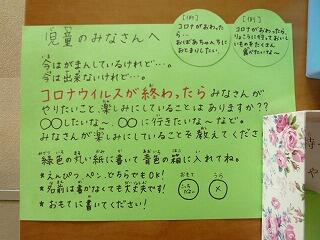 児童のみなさんへ
今はがまんしているけれど…。
今は出来ないけれど…。
コロナウイルスが終わったら みなさんが
やりたいこと、楽しみにしていることはありますか??
○○したいな〜、○○に行きたいな〜など。
みなさんが楽しみにしていることを教えてください
緑色の丸い紙に書いて青色の箱に入れてね。
★えんぴつ、ペン、どちらでもOK!
★名前は書かなくても大丈夫です!
★おもてに書いてください!
おもて
うら
×
(例)
コロナがおわったら…
おばあちゃんちに
おとまりしたい。
(例)
コロナがおわったら、
りょこうに行っておいしい
ものをたくさん
食べたいな〜
待
や